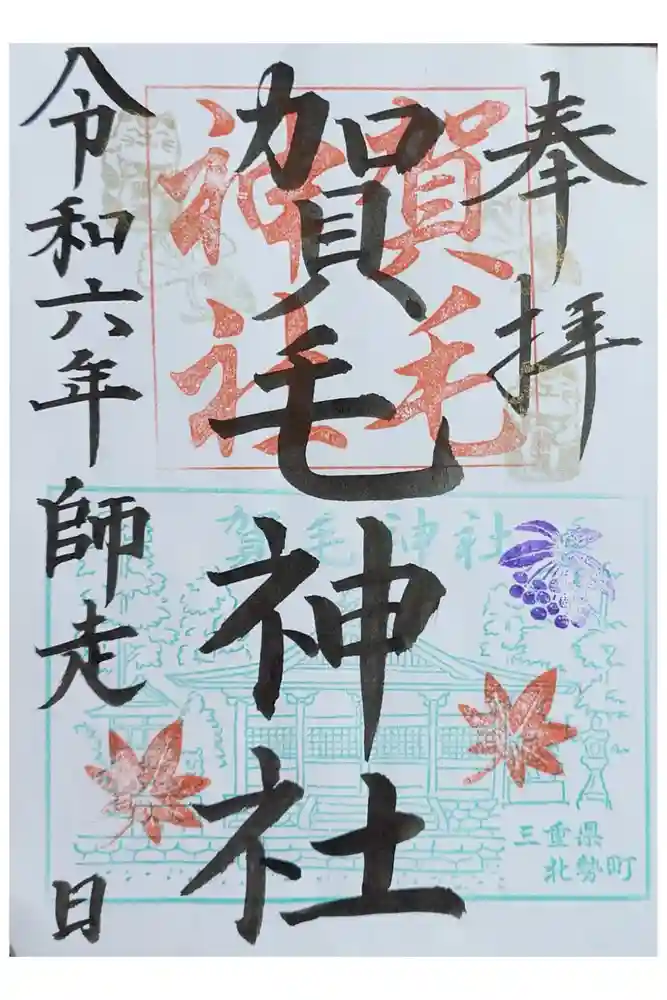 奉拝
賀毛
神社
賀毛神社
令和六年師走 日
賀毛神社
三重県
北勢町